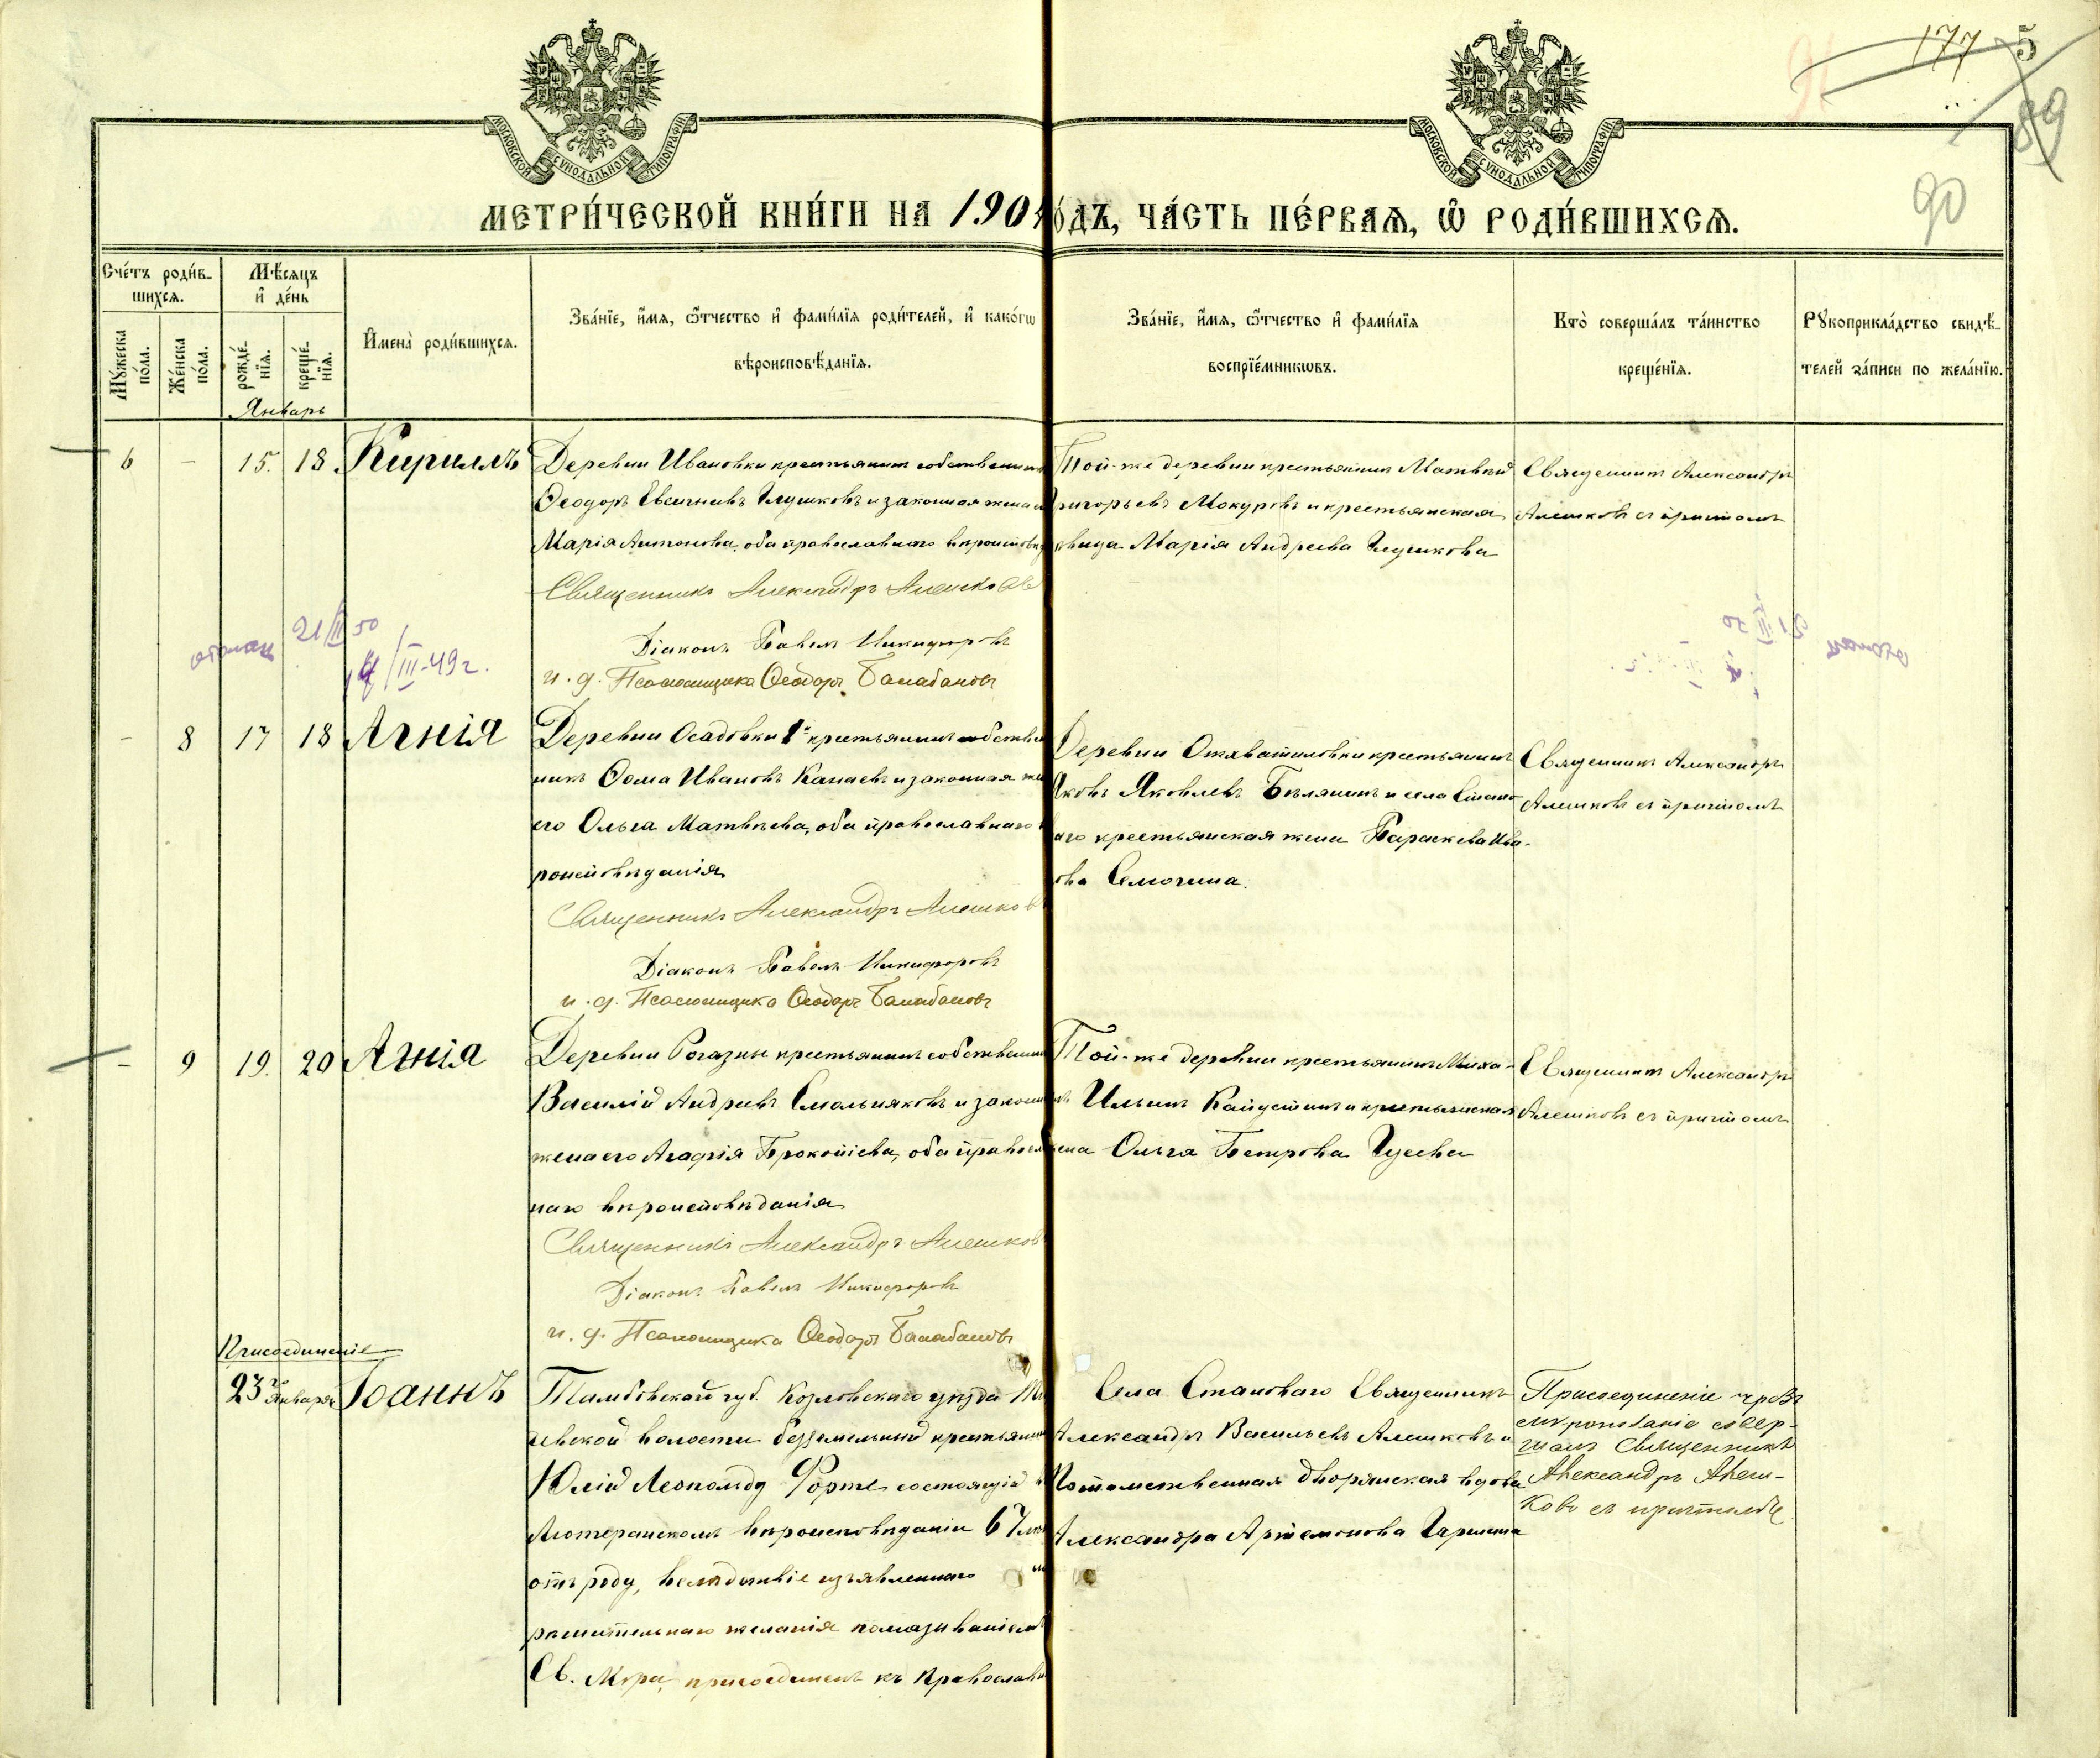 177 5
89
90
МОСКОВСКОЙ СѴНОДАЛЬНОЙ ТИПОГРАФІИ
МОСКОВСКОЙ СѴНОДАЛЬНОЙ ТИПОГРАФІИ
МЕТРИ́ЧЕСКОЙ КНИ́ГИ НА 190 го́дъ, ЧА́СТЬ ПЕ́РВАѦ, Ѽ РОДИ́ВШИХСѦ.
Сче́тъ роди́в-
шихсѧ.
Мѣ́сѧцъ
и҆ де́нь
Мꙋ́жеска
по́ла.
Же́нска
по́ла.
рожде́-
нїѧ.
креще́-
нїѧ.
И҆мена̀ роди́вшихсѧ.
Зва́нїе, и҆́мѧ, ѻ҆́тчество и҆ фами́лїѧ роди́телей, и҆ како́гѡ
вѣроисповѣ́данїѧ.
Зва́нїе, и҆́мѧ, ѻ҆́тчество и҆ фами́лїѧ
воспрїе́мникѡвъ.
Кто̀ соверша́лъ та́инство
креще́нїѧ.
Рꙋкоприкла́дство свидѣ́-
телей за́писи по жела́нїю.
Январь
6 - 15. 18 Кириллъ
Деревни Ивановки крестьянинъ собственникъ
Ѳеодоръ Евсигнеевъ Глушковъ и законная жена
Марія Антонова, оба православнаго вероисповед
Священникъ Александръ Алешковъ
Діаконъ Павелъ Никифоровъ
и. д. Псаломщика Ѳеодоръ Балабановъ
Той-же деревни крестьянинъ Матвей
Григорьевъ Мокуровъ и крестьянская
девица Марія Андреева Глушкова
Священникъ Александръ
Алешковъ съ причтомъ
21/II 50
/III-49 г.
- 8 17 18 Агнія
Деревни Осадовки 1й крестьянинъ собствен
никъ Ѳома Ивановъ Канаевъ и законная же
его Ольга Матвѣева, оба православнаго
роисповѣданія
Священникъ Александръ Алешков
Діаконъ Павелъ Никифоровъ
и. д. Псаломщика Ѳеодоръ Балабановъ
Деревни Отхватиловки крестьянинъ
Яковъ Яковлевъ Бѣлянинъ и села Стано
аго крестьянская жена Параскева Ива-
ова Семочина.
Священникъ Александръ
Алешковъ съ причтомъ
- 9 19. 20 Агнія
Деревни Рогазны крестьянинъ собственни
Василій Андреевъ Смольняковъ и законн
жена его Агафія Прокопіева, оба правосл
наго вѣроисповѣданія
Священникъ Александръ Алешков
Діаконъ Павелъ Никифоровъ
и. д. Псаломщика Ѳеодоръ Балабановъ
Той-же деревни крестьянинъ Миха-
лъ Ильинъ и крестьянская
жена Ольга Петрова Гусева
Священникъ Александръ
Алешковъ съ причтомъ
Присоединеніе
23го Января Іоаннъ
Тамбовской губ. Козловскаго уѣзда
евской волости безземельный крестьянин
Юлій Леопольдъ Форте состоящій
Лютеранскомъ вѣроисповѣданіи 67 лѣт
отъ роду, вслѣдствіе изъявленнаго
рѣшительнаго желанія помазываніемъ
Св. Мѵра, присоединенъ къ Православі
Села Становаго Священникъ
Александръ Васильевъ Алешковъ и
Потомственная дворянская вдова
Александра Артемонова Гаршина
Присоединеніе чрезъ
мѵропомазаніе совер-
шалъ Священникъ
Александръ Алеш-
ковъ съ причтомъ